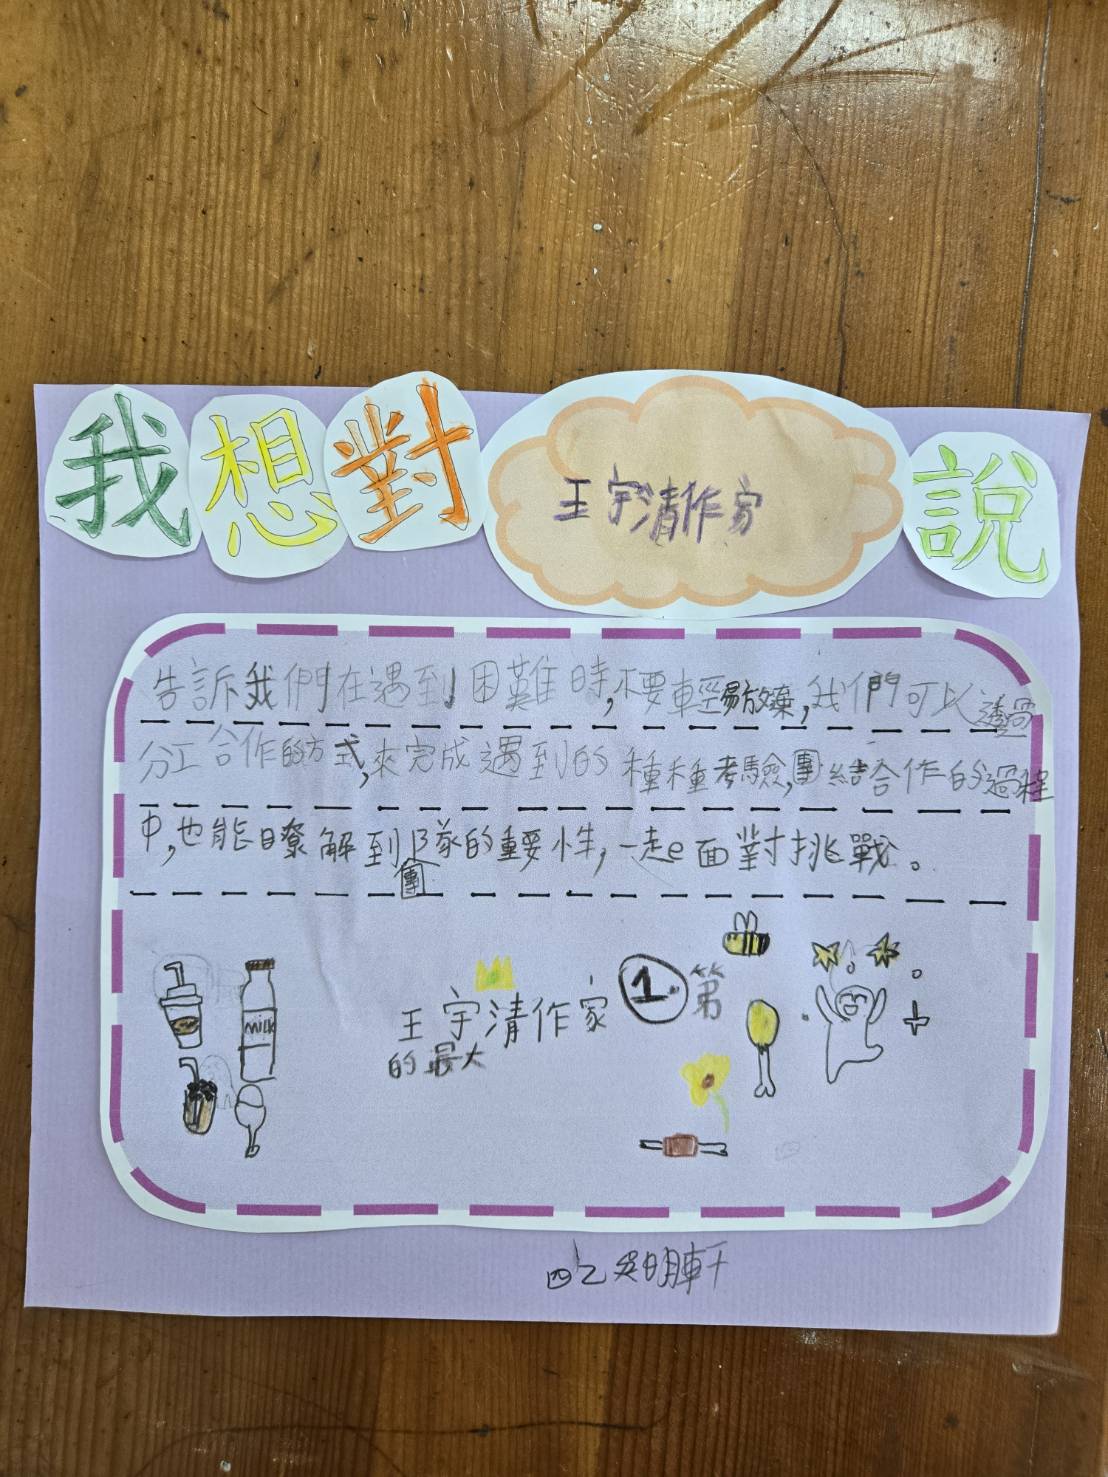 我想對王宇清作家說
告訴我們在遇到困難時,不要輕易放棄,我們可以透過
分工合作的方式,來完成遇到的種種考驗,團結合作的過程
中,也能瞭解到團隊的重要性,一起面對挑戰。
王宇清作家
的最大
1.
第
milk
四乙 吳明軒